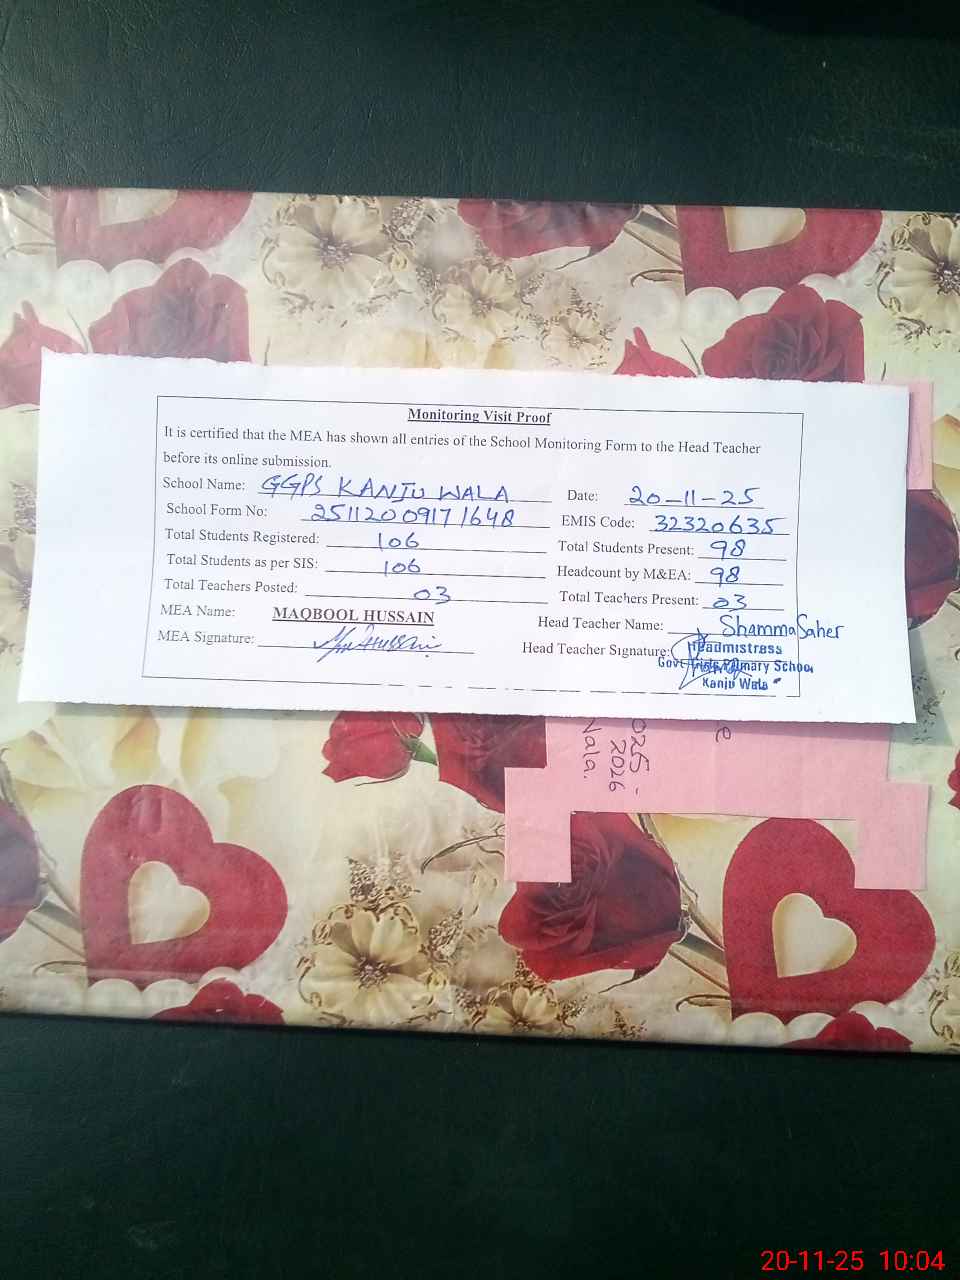 Monitoring Visit Proof
It is certified that the MEA has shown all entries of the School Monitoring Form to the Head Teacher
before its online submission.
School Name: GGPS KANJU WALA Date: 20-11-25
School Form No: 25112009171648 EMIS Code: 32320635
Total Students Registered: 106 Total Students Present: 98
Total Students as per SIS: 106 Headcount by M&EA: 98
Total Teachers Posted: 03 Total Teachers Present: 03
MEA Name: MAQBOOL HUSSAIN Head Teacher Name: Shamma Saher
MEA Signature: Head Teacher Signature:
Headmistress
Govt Girls Primary School
Kanju Wala
2025 -
2026
Wala.
20-11-25 10:04